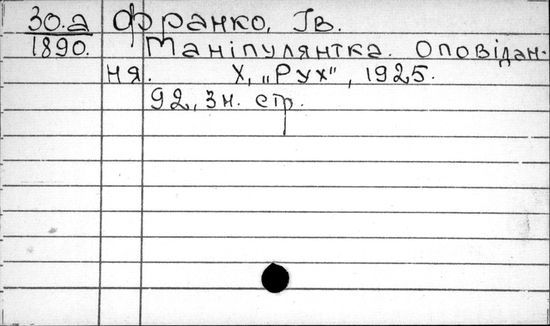 30.а Франко, Ів.
1890. Маніпулянтка. Оповідан-
ня. Х, „Рух", 1925.
92, 3 н. стр.